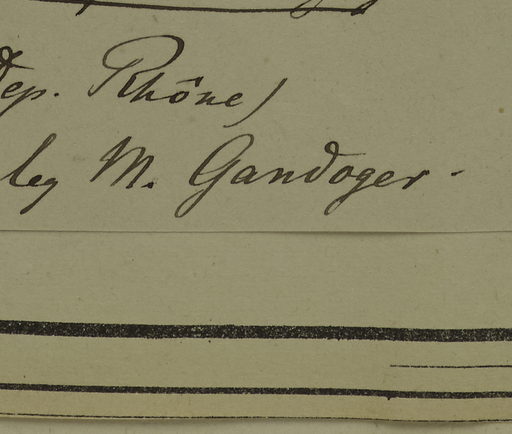 Dep. Rhône)
leg M. Gandoger.